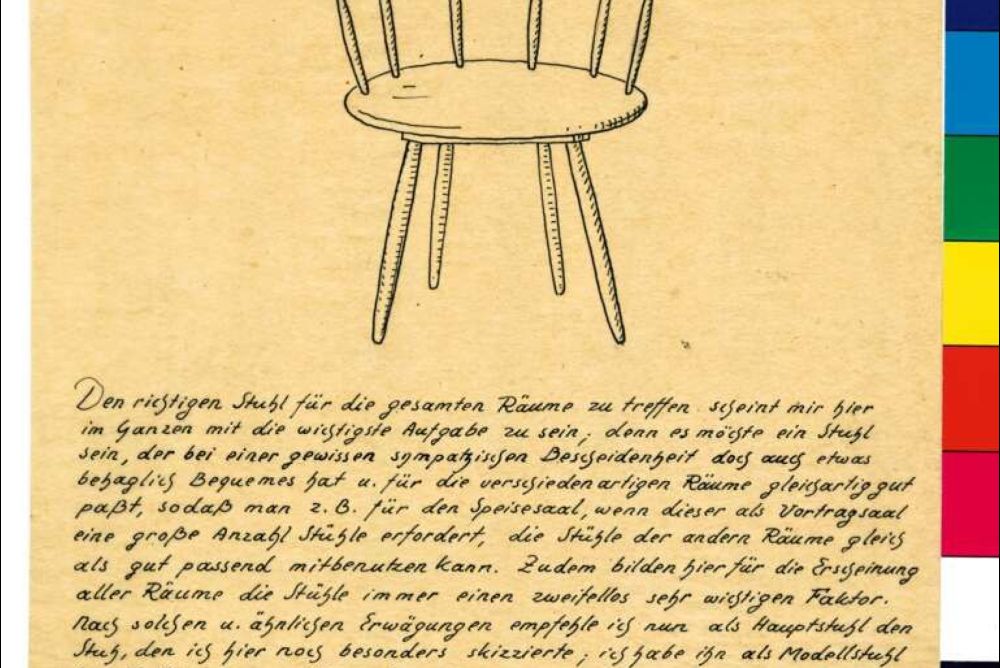 Den richtigen Stuhl für die gesamten Räume zu treffen scheint mir hier
im Ganzen mit die wichtigste Aufgabe zu sein; denn es möchte ein Stuhl
sein, der bei einer gewissen sympathischen Bescheidenheit doch auch etwas
behaglich Bequemes hat u. für die verschiedenartigen Räume gleichartig gut
paßt, sodaß man z. B. für den Speisesaal, wenn dieser als Vortragsaal
eine große Anzahl Stühle erfordert, die Stühle der andern Räume gleich
als gut passend mitbenutzen kann. Zudem bilden hier für die Erscheinung
aller Räume die Stühle immer einen zweifellos sehr wichtigen Faktor.
Nach solchen u. ähnlichen Erwägungen empfehle ich nun als Hauptstuhl den
Stuh, den ich hier noch besonders skizzierte; ich habe ihn als Modellstuhl